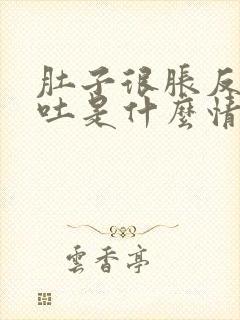 肚子很脹反
吐是什麼情
雲香亭